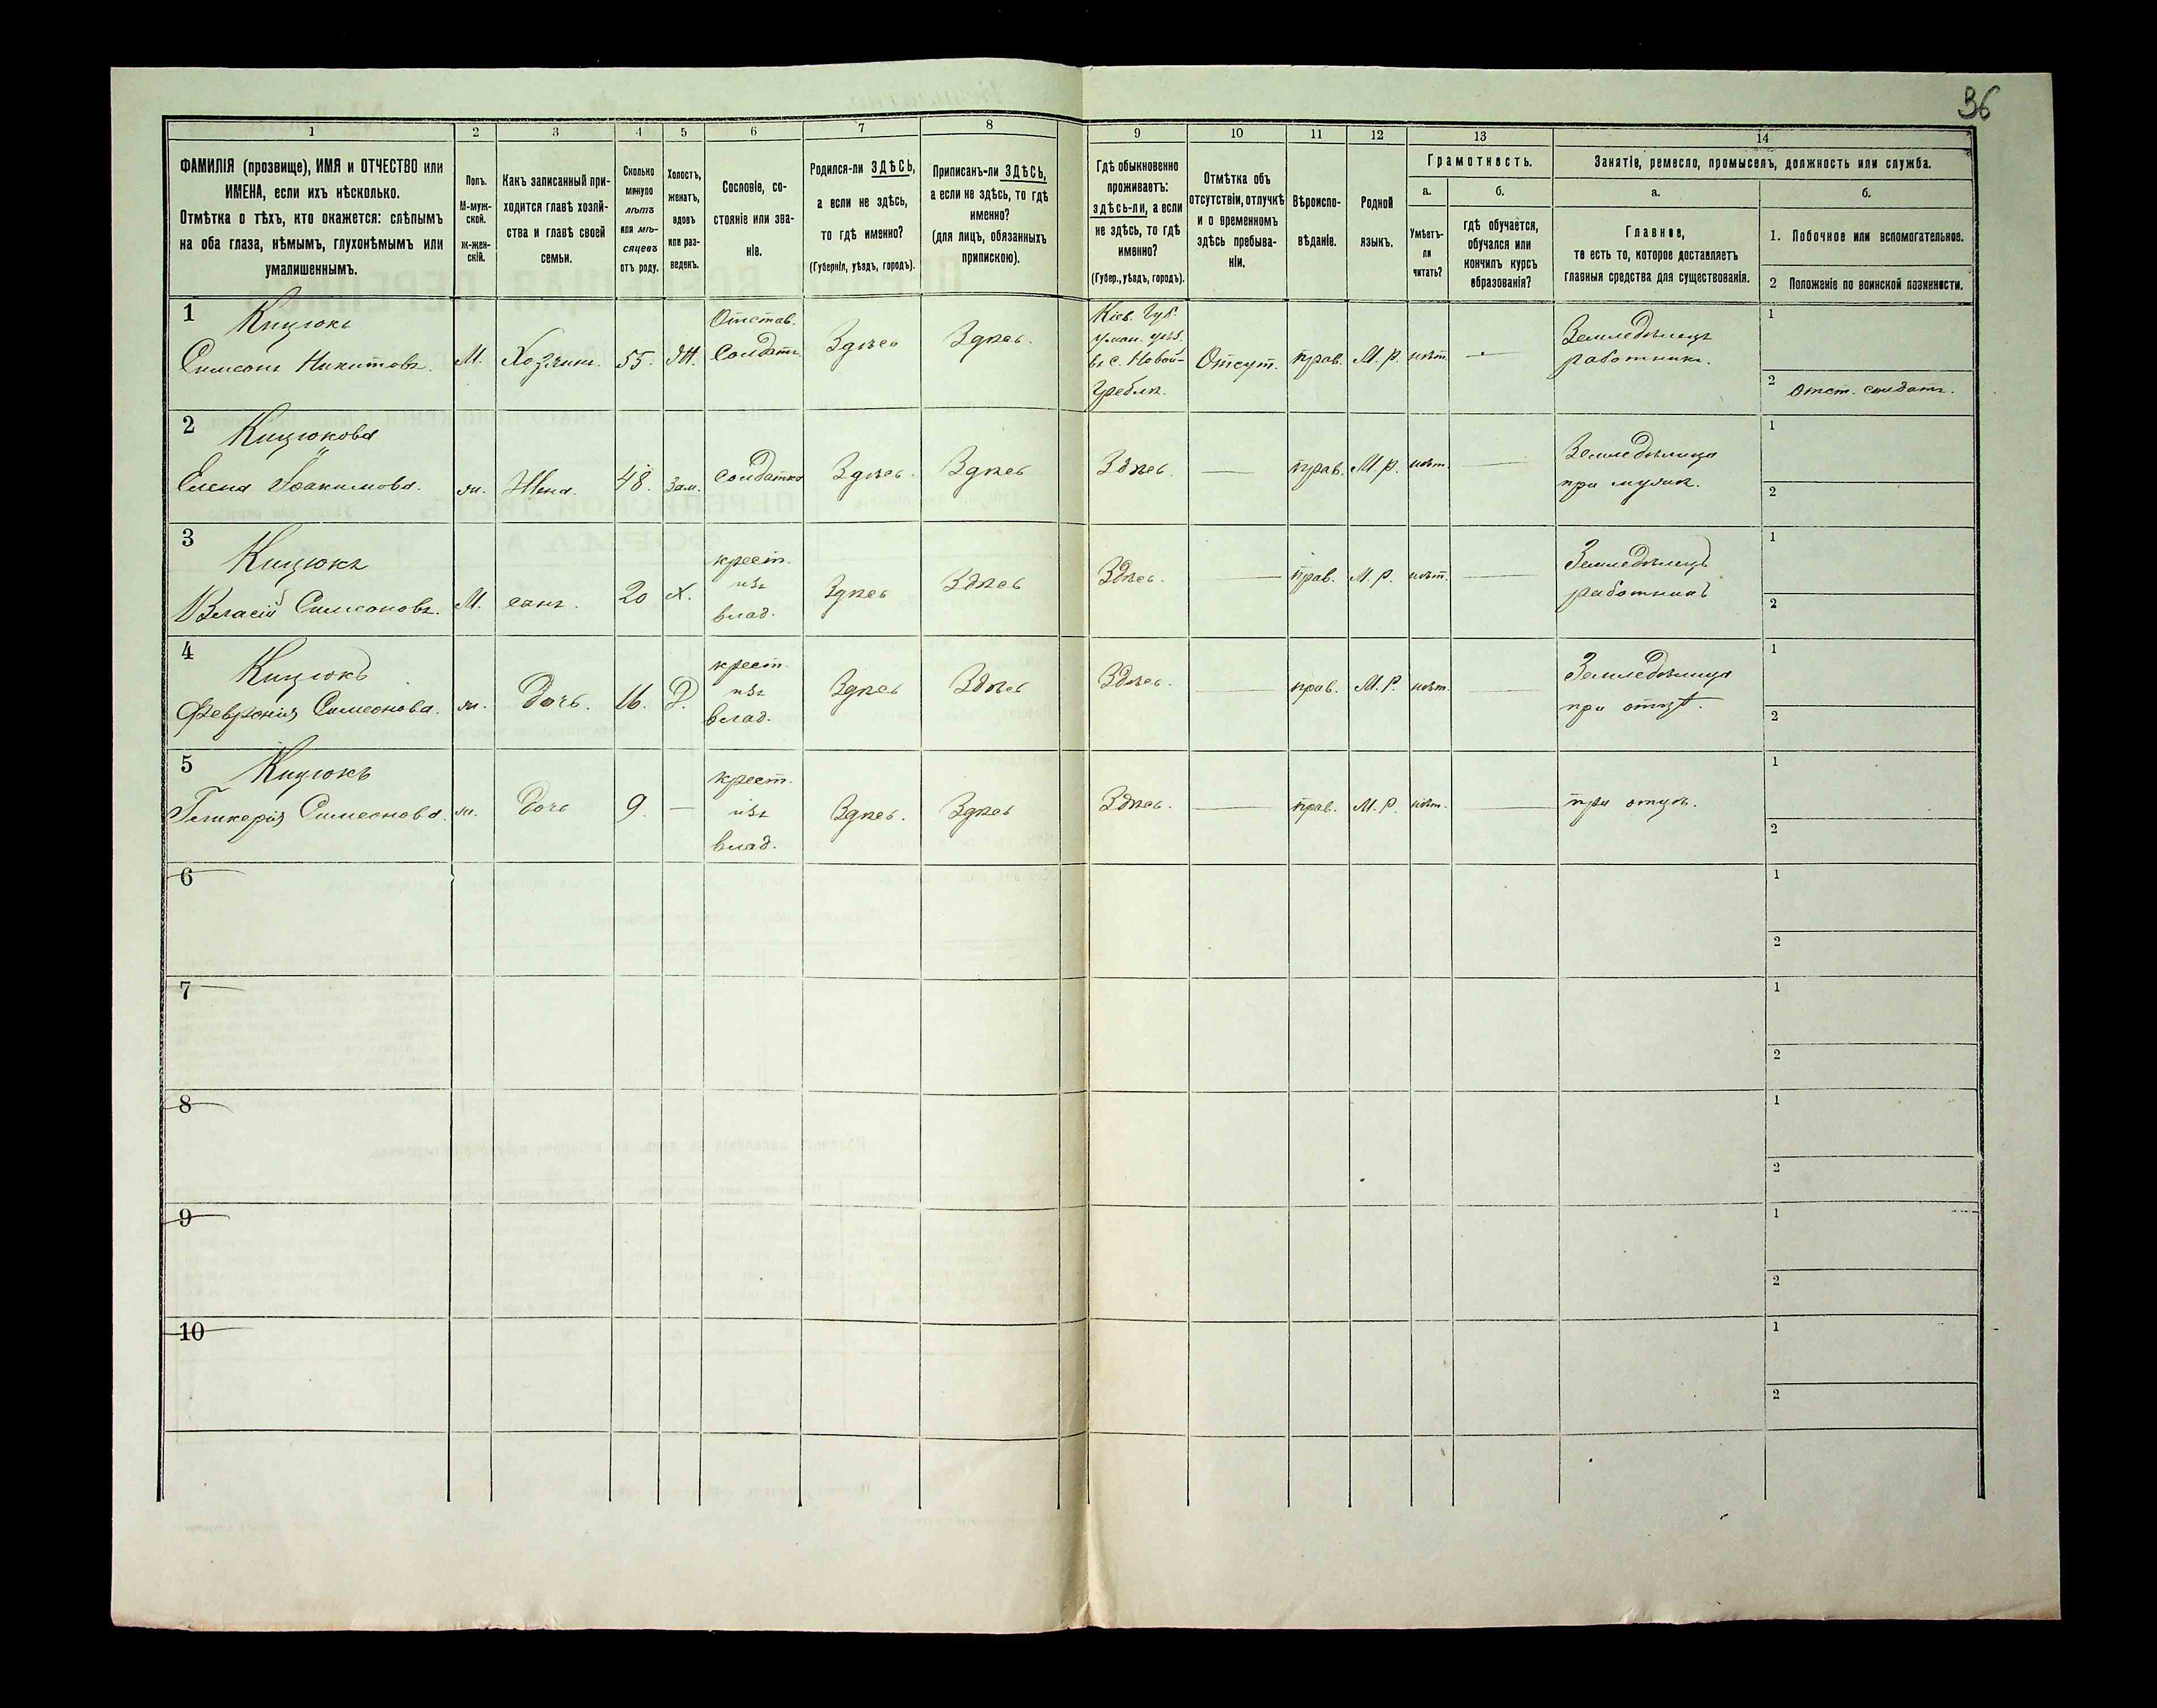 36
1 2 3 4 5 6 7 8 9 10 11 12 13 14
ФАМИЛІЯ (прозвище), ИМЯ и ОТЧЕСТВО или
ИМЕНА, если ихъ нѣсколько.
Отмѣтка о тѣхъ, кто окажется: слѣпымъ
на оба глаза, нѣмымъ, глухонѣмымъ или
умалишеннымъ.
Полъ.
М-муж-
ской.
ж-жен-
скій.
Какъ записанный при-
ходится главѣ хозяй-
ства и главѣ своей
семьи.
Сколько
минуло
лѣтъ
или мѣ-
сяцевъ
отъ роду.
Холостъ,
женатъ,
вдовъ
или раз-
веденъ.
Сословіе, со-
стояніе или зва-
ніе.
Родился-ли ЗДѢСЬ,
а если не здѣсь,
то гдѣ именно?
(Губернія, уѣздъ, городъ).
Приписанъ-ли ЗДѢСЬ,
а если не здѣсь, то гдѣ
именно?
(для лицъ, обязанныхъ
припискою).
Гдѣ обыкновенно
проживаетъ:
здѣсь-ли, а если
не здѣсь, то гдѣ
именно?
(Губер., уѣздъ, городъ).
Отмѣтка объ
отсутствіи, отлучкѣ
и о временномъ
здѣсь пребыва-
ніи.
Вѣроиспо-
вѣданіе.
Родной
языкъ.
Грамотность.
а.
Умѣетъ-
ли
читать?
б.
гдѣ обучается,
обучался или
кончилъ курсъ
образованія?
Занятіе, ремесло, промыселъ, должность или служба.
а.
Главное,
то есть то, которое доставляетъ
главныя средства для существованія.
б.
1. Побочное или вспомогательное.
2 Положеніе по воинской повинности.
1
Кицюкъ
Симеонъ Никитовъ.
М.
Хозяинъ.
55.
Ж.
Отстав.
Солдатъ.
Здѣсь
Здѣсь.
Кіев. Губ.
Уман. уѣз.
въ с. Новой-
Гребли.
Отсут.
прав.
М. р.
нѣт.
—
Земледѣлецъ
работникъ.
1
2 Отст. солдатъ.
2
Кицюкова
Елена Іоакимова.
ж.
Жена.
48.
Зам.
солдатка
Здѣсь.
Здѣсь
Здѣсь.
—
прав.
М. р.
нѣт.
—
Земледѣлица
при мужѣ.
1
2
3
Кицюкъ
Власій Симеоновъ.
М.
сынъ.
20
Х.
крест.
изъ
влад.
Здѣсь
Здѣсь
Здѣсь.
—
прав.
М. р.
нѣт.
—
Земледѣлецъ
работникъ
1
2
4
Кицюкъ
Февронія Симеонова.
ж.
Дочь.
16.
Д.
крест.
изъ
влад.
Здѣсь
Здѣсь
Здѣсь.
—
прав.
М. Р.
нѣт.
—
Земледѣлица
при отцѣ.
1
2
5
Кицюкъ
Гликерія Симеонова.
ж.
Дочь
9.
—
крест.
изъ
влад.
Здѣсь.
Здѣсь
Здѣсь.
—
прав.
М. Р.
нѣт.
—
при отцѣ.
1
2
6
1
2
7
1
2
8
1
2
9
1
2
10
1
2